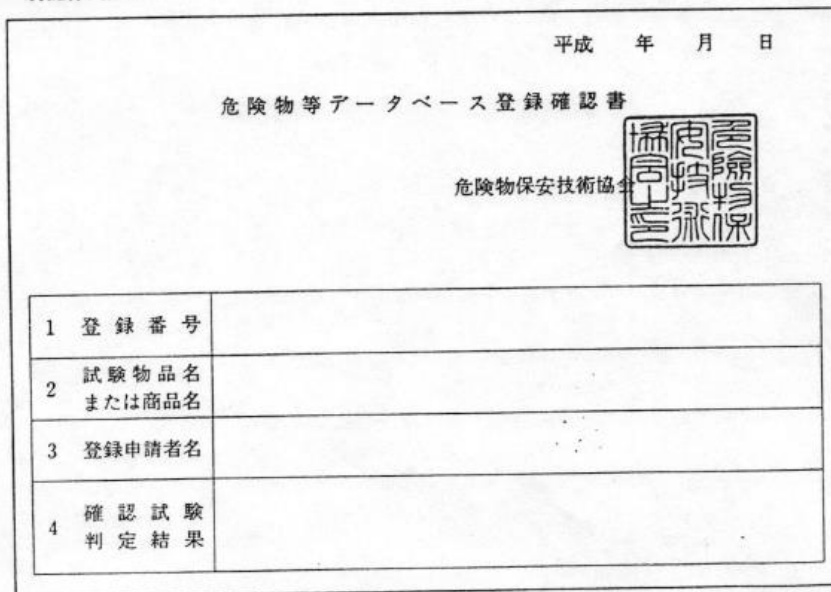 平成 年 月 日
危険物等データベース登録確認書
危険物保安技術協会
危險物保
安技術
協会之印
1 登録番号
2 試験物品名
または商品名
3 登録申請者名
4 確認試験
判定結果